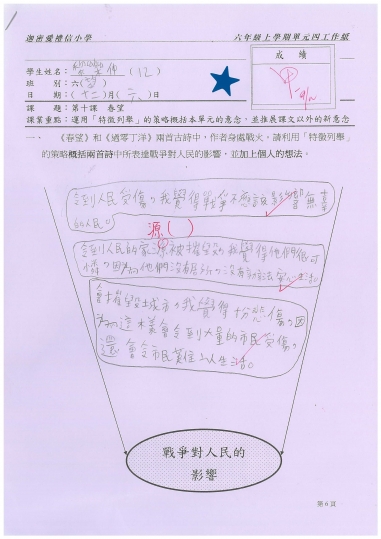 迦密愛禮信小學 六年級上學期單元四工作紙
成績
甲
學生姓名： (12)
班 別：六( )
日 期：(十二)月(二)日
課 題：第十課 春望
課業重點：運用「特徵列舉」的策略概括本單元的意念，並推展課文以外的新意念
一、 《春望》和《過零丁洋》兩首古詩中，作者身處戰火，請利用「特徵列舉」
的策略概括兩首詩中所表達戰爭對人民的影響，並加上個人的想法。
令到人民受傷，我覺得戰爭不應該影響無辜
的人民。
源( )
令到人民的家 被摧毀，我覺得他們很可
憐，因為他們沒有 所，沒有 法
會摧毀城市，我覺得 悲傷，因
為這 會令到大量的市民受傷，
還會令市民難以生活。
戰爭對人民的
影響
第6頁